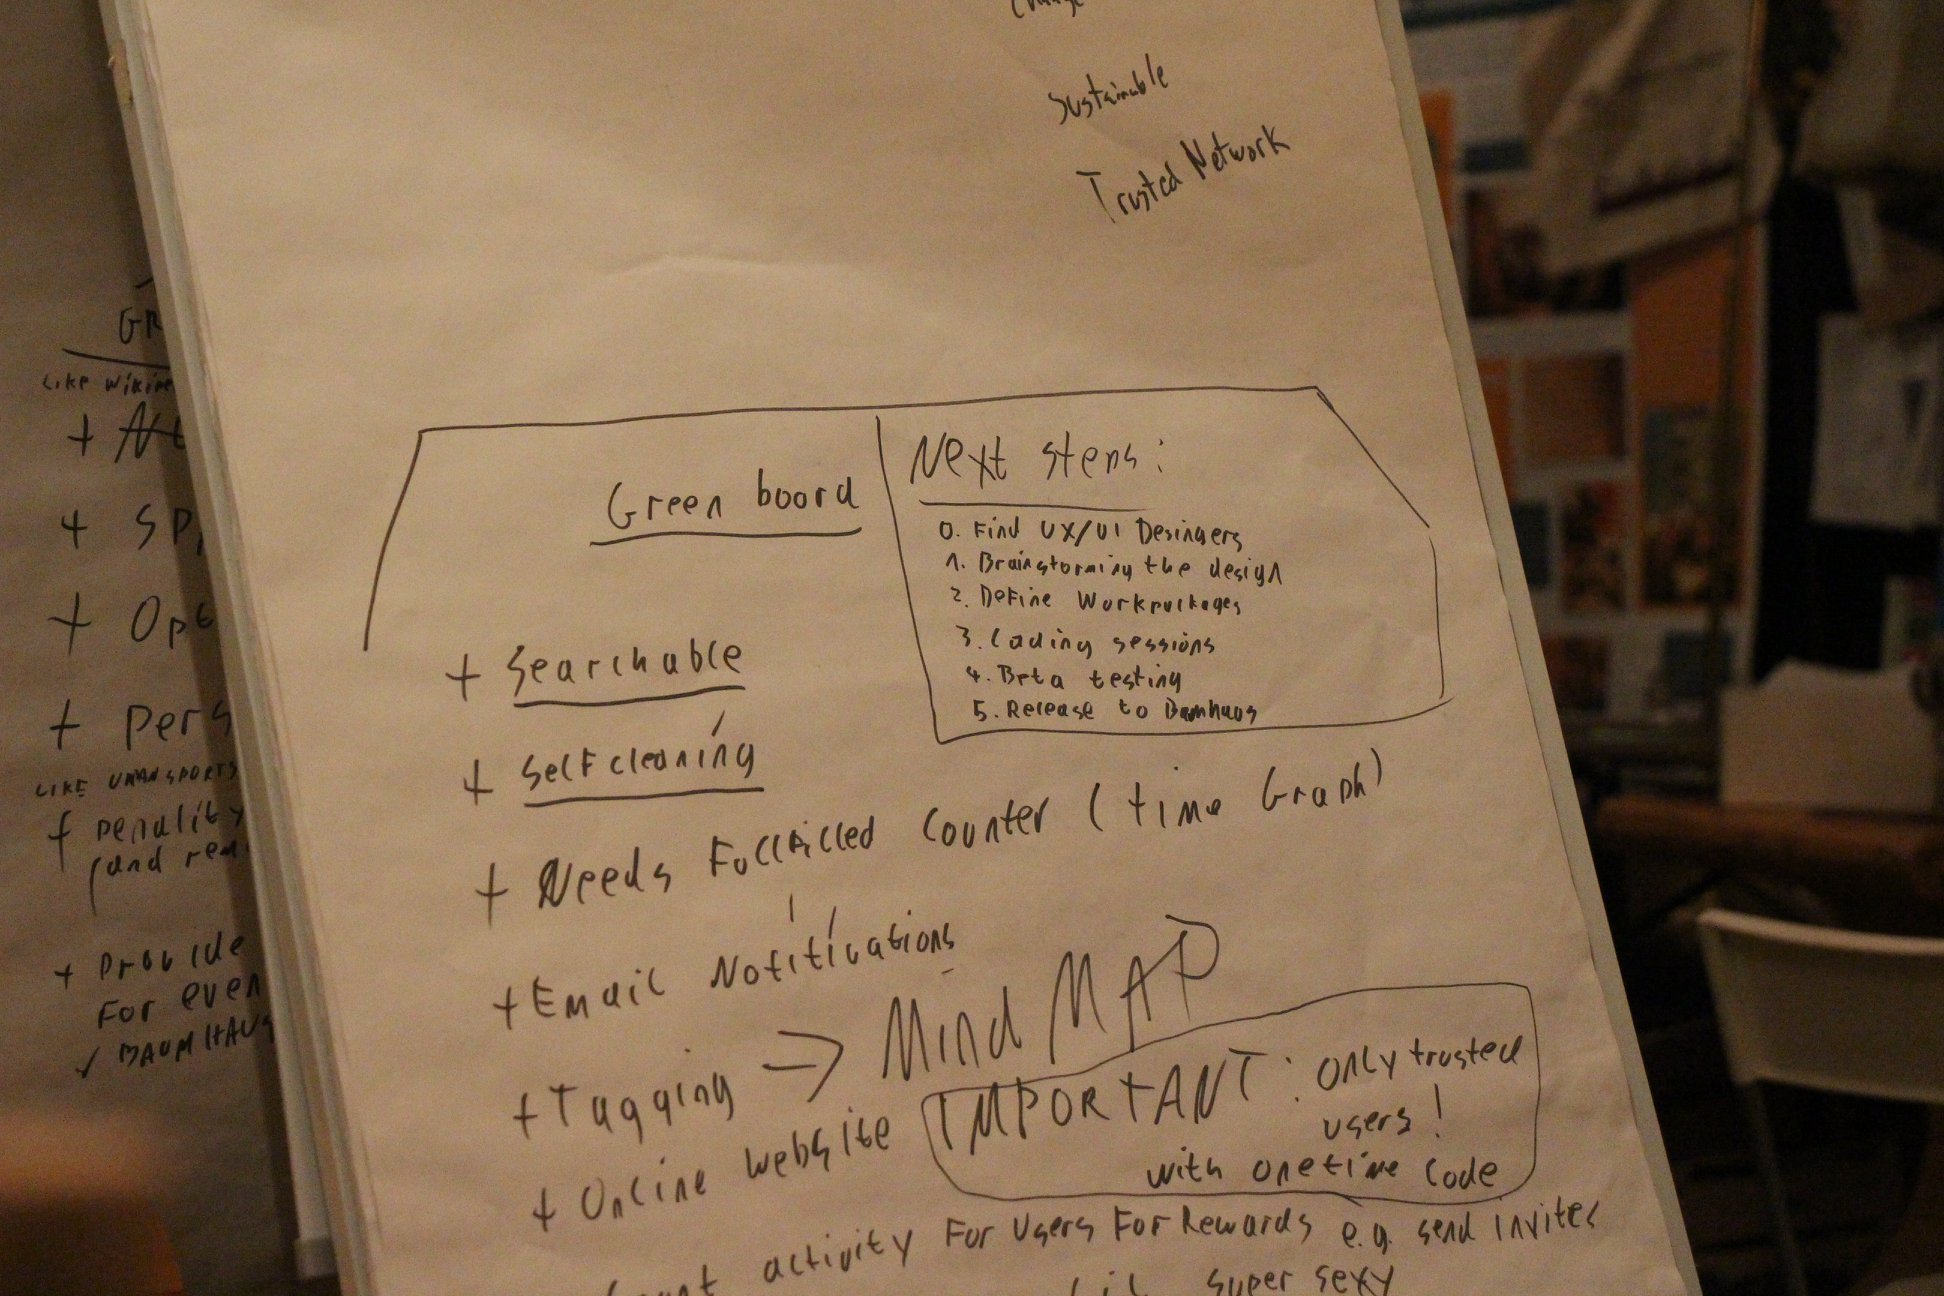 Sustainable
Trusted Network
Green board
Next steps:
0. Find UX/UI Desingers
1. Brainstorming the design
2. Define Workpackages
3. Coding sessions
4. Beta testing
5. Release to Bamhaus
+ Searchable
+ Selfcleaning
+ Needs Fullfilled Counter (time Graph)
+ Email Notifications
+ Tagging → Mind MAP
+ Online website
IMPORTANT: only trusted
users!
with onetime code
activity For Users For Rewards e.g. send invites
super sexy
GR
LIKE WIKIME
+
+ SP
+ Ope
+ pers
LIKE
+ penality
(and
+ Provide
For even
✓ BAUMHAUS